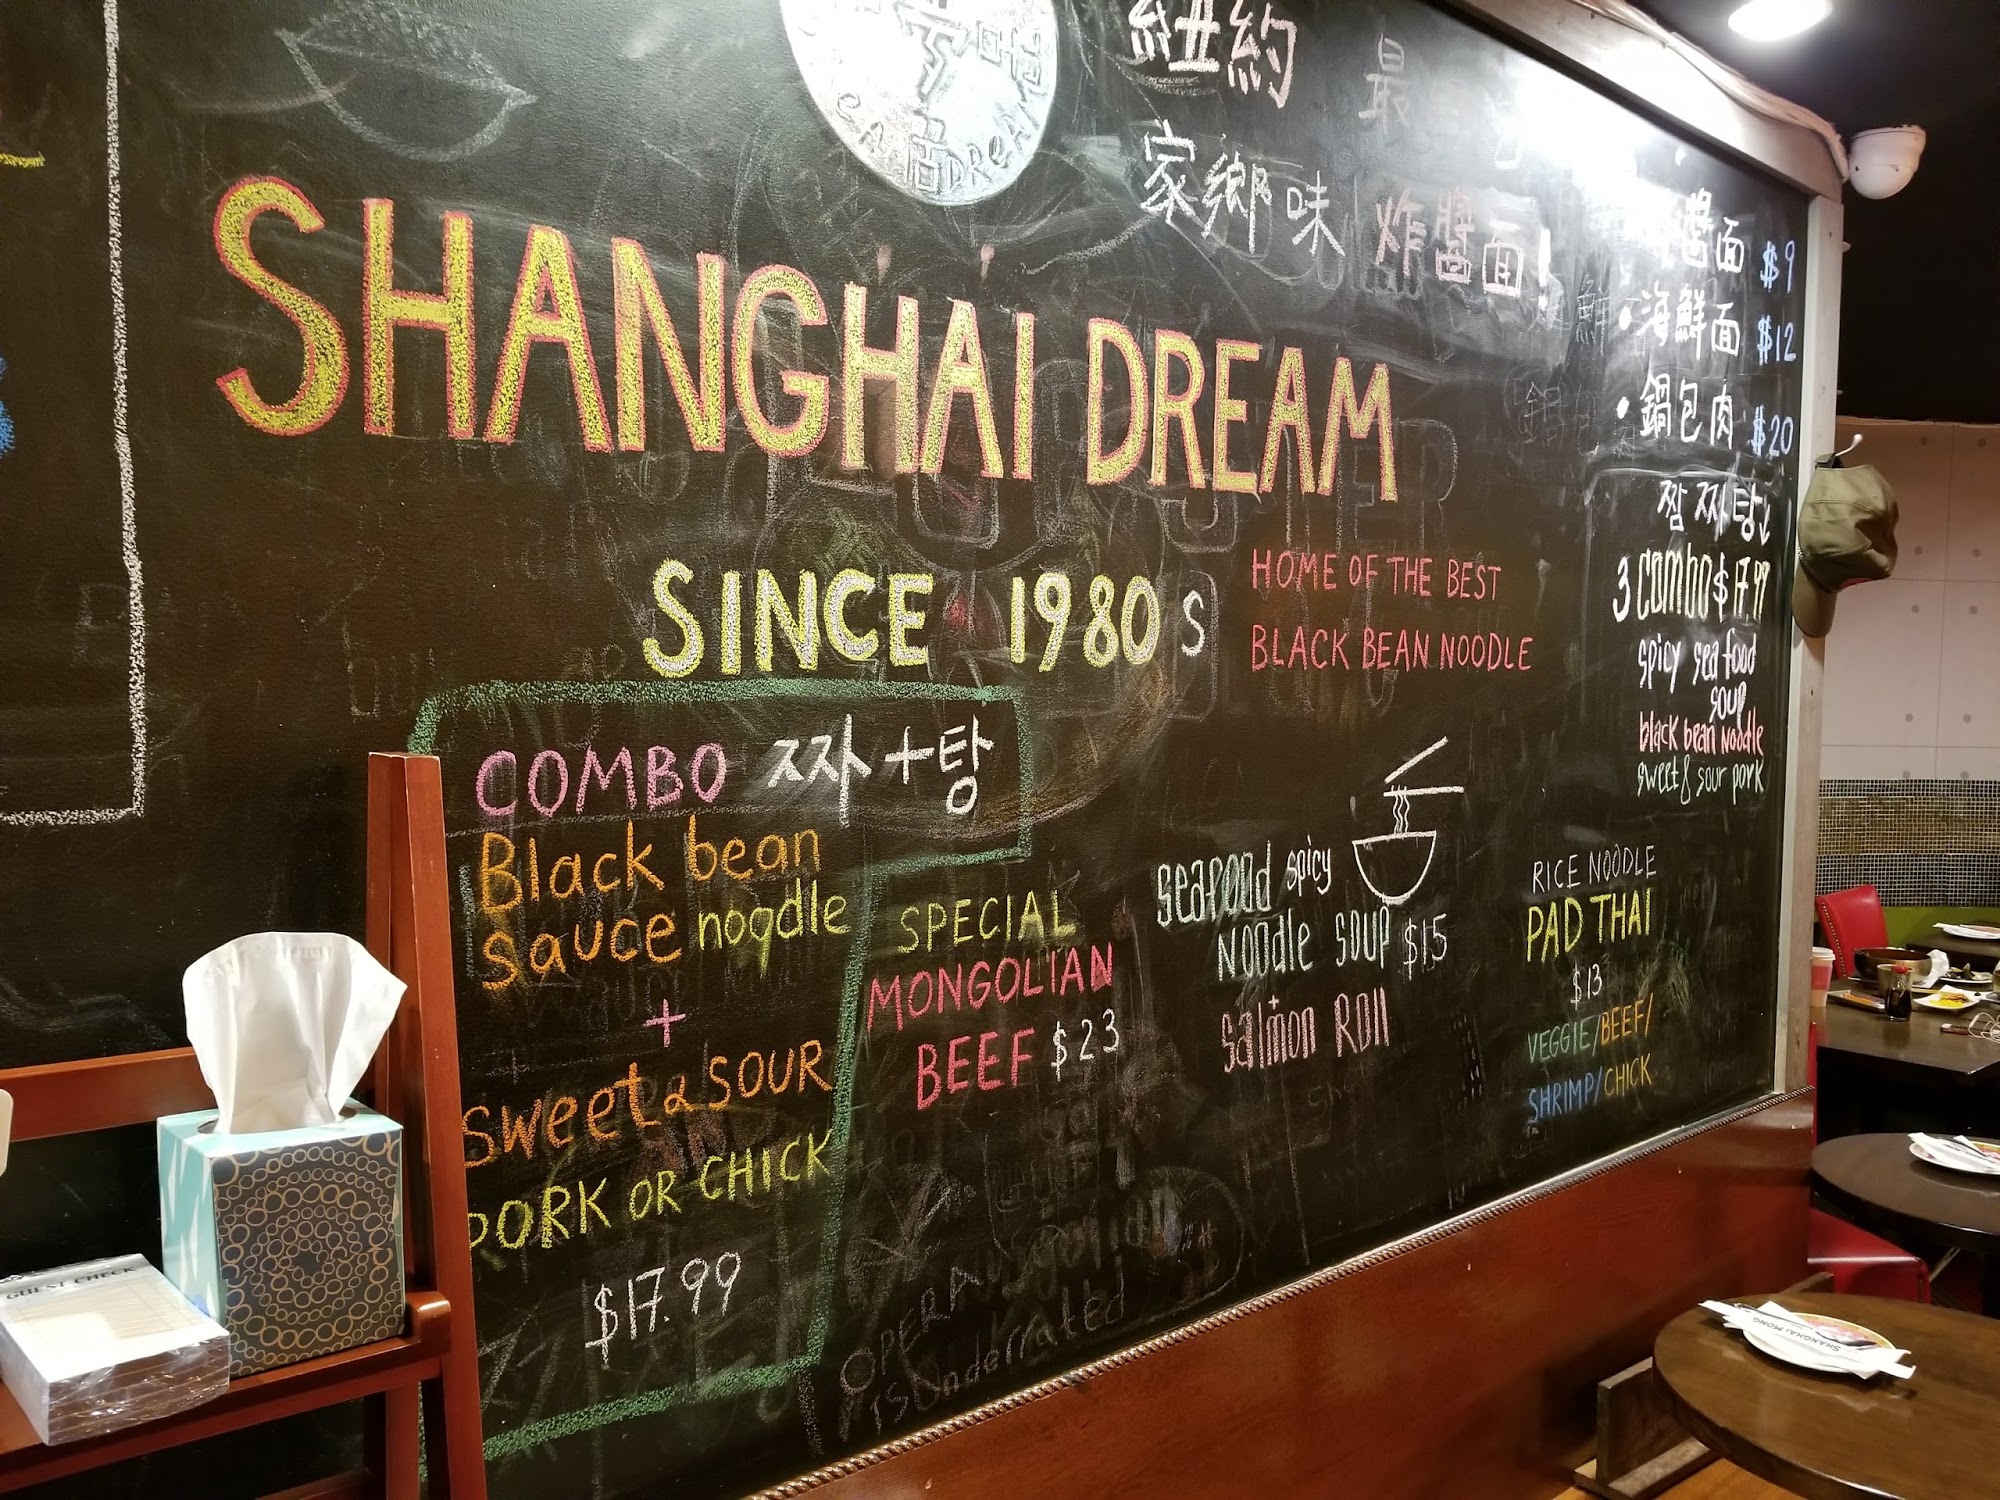 紐約
最
家鄉味 炸醬面!
SHANGHAI DREAM
SINCE 1980s
HOME OF THE BEST
BLACK BEAN NOODLE
醬面 $9
• 海鮮面 $12
• 鍋包肉 $20
짬 짜 탕↓
3 combo $17.99
spicy sea food
soup
black bean noodle
sweet & sour pork
COMBO 짜+탕
Black bean
sauce noodle
+
sweet & SOUR
PORK OR CHICK
$17.99
SPECIAL
MONGOLIAN
BEEF $23
seafood spicy
noodle soup $15
+
salmon Roll
RICE NOODLE
PAD THAI
$13
VEGGIE/BEEF/
SHRIMP/CHICK
OPERA
is Underrated
GUEST CHECK
SHANGHAI MONG